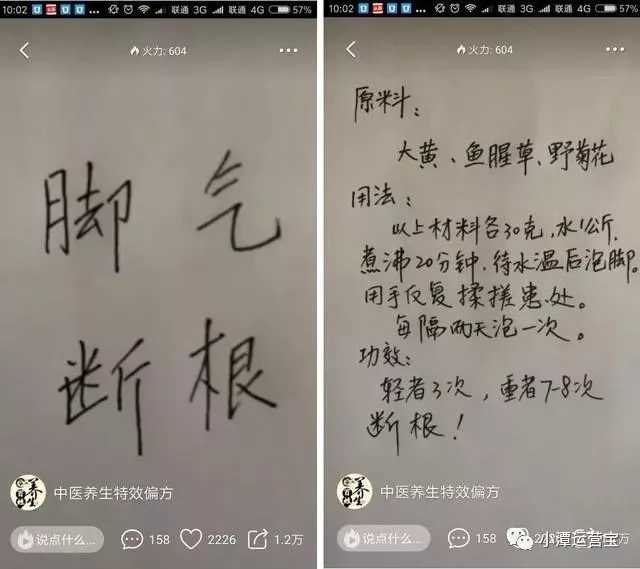 10:02
... 联通 3G 联通 4G 57%
火力: 604
...
脚气
断根
中医养生特效偏方
说点什么...
158
2226
1.2万
10:02
... 联通 3G 联通 4G 57%
火力: 604
...
原料:
大黄、鱼腥草、野菊花
用法:
以上材料各30克,水1公斤,
煮沸20分钟,待水温后泡脚。
用手反复揉搓患处。
每隔两天泡一次。
功效:
轻者3次,重者7-8次
断根!
中医养生特效偏方
说点什么...
158
小潭运营宝